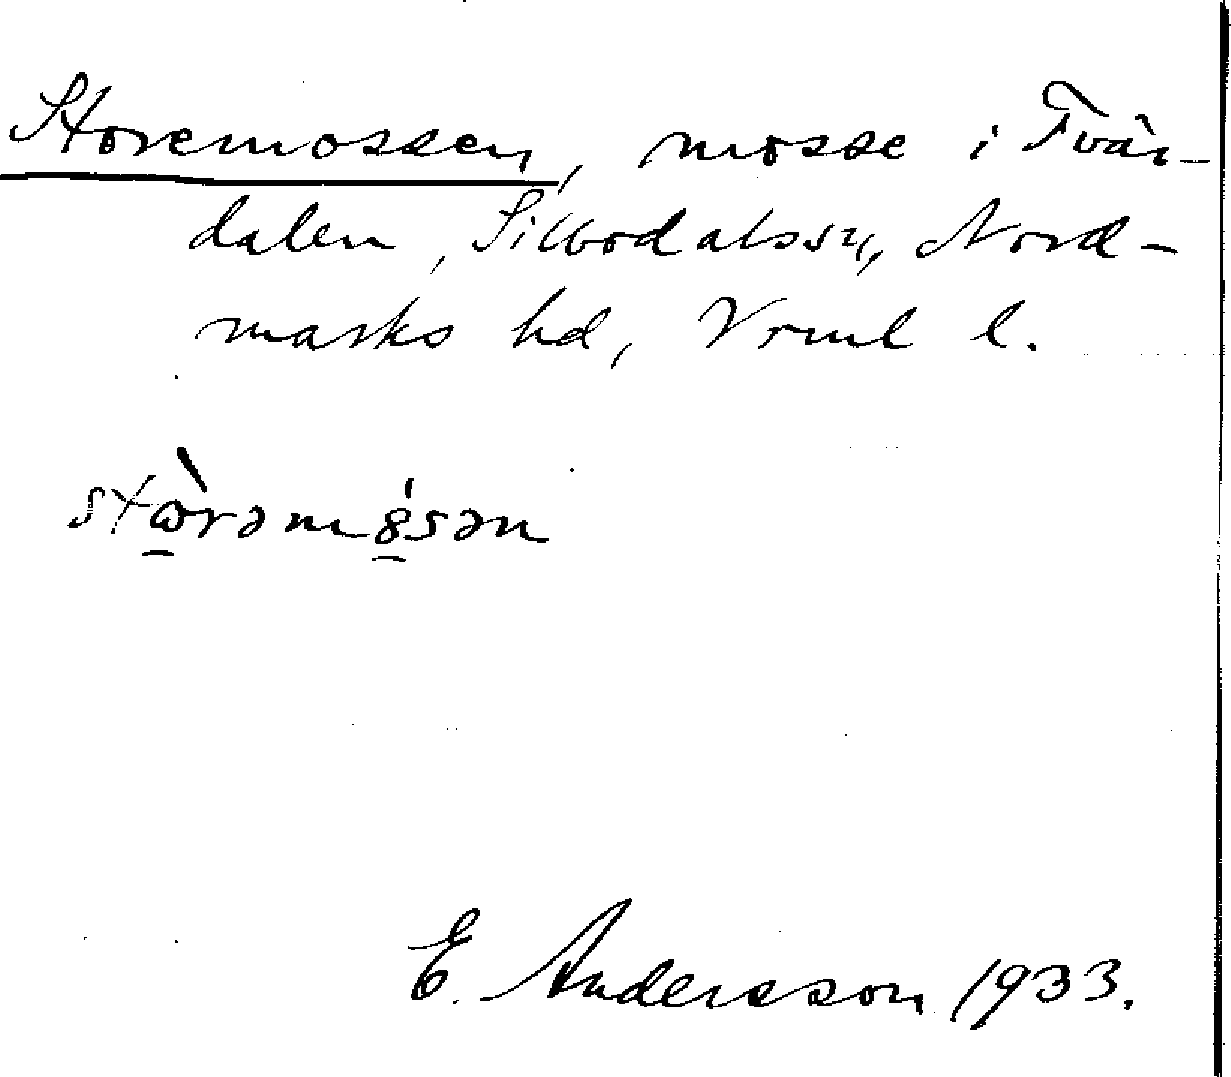 Storemossen, mosse i Tvär-
dalen, Silbodals sn, Nord-
marks hd, Vrml l.
stὼ̠rəmȣ̠́sən
E. Andersson 1933.